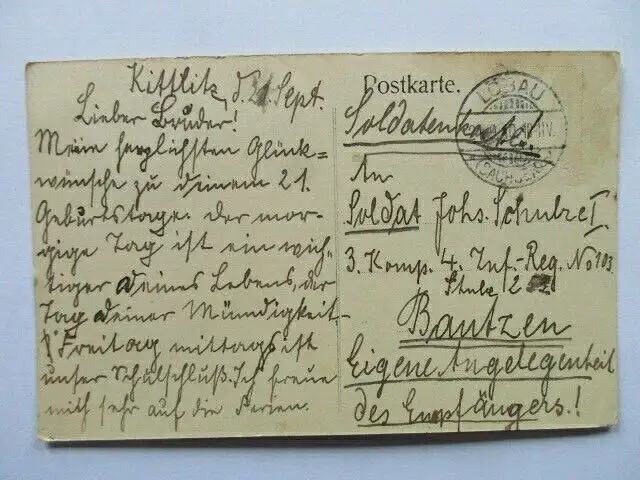 Kittlitz, d. 21. Sept.
Lieber Bruder!
Meine herzlichsten Glück=
wünsche zu deinem 21.
Geburtstage. der mor-
gige Tag ist ein wich-
tiger deines Lebens, der
Tag deiner Mündigkeit.
Freitag mittags ist
unser Schulschluß. Ich freue
mich sehr auf die Ferien.
Postkarte.
LÖBAU
(SACHSEN)
An
Soldat Johs. Schulze I
3. Komp. 4. Inf.-Reg. No 103
Stube 12
Bautzen
Eigene Angelegenheit
des Empfängers.!